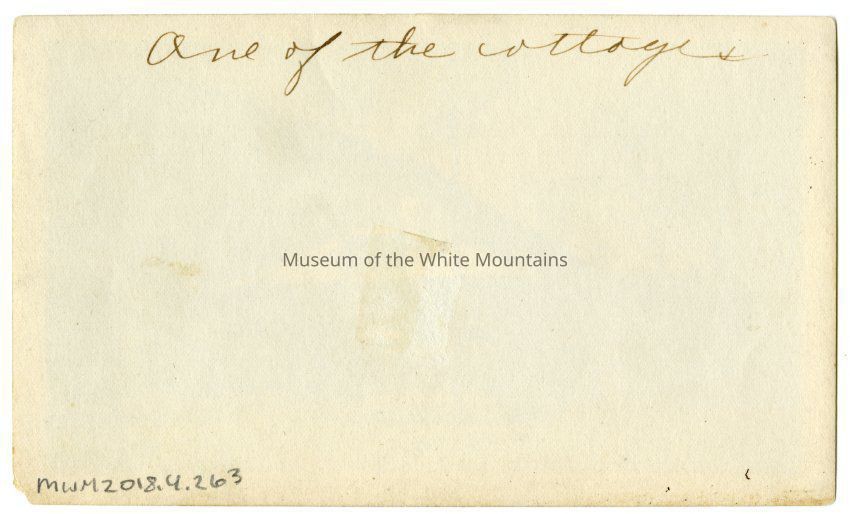 One of the cottages
Museum of the White Mountains
MWM2018.4.263